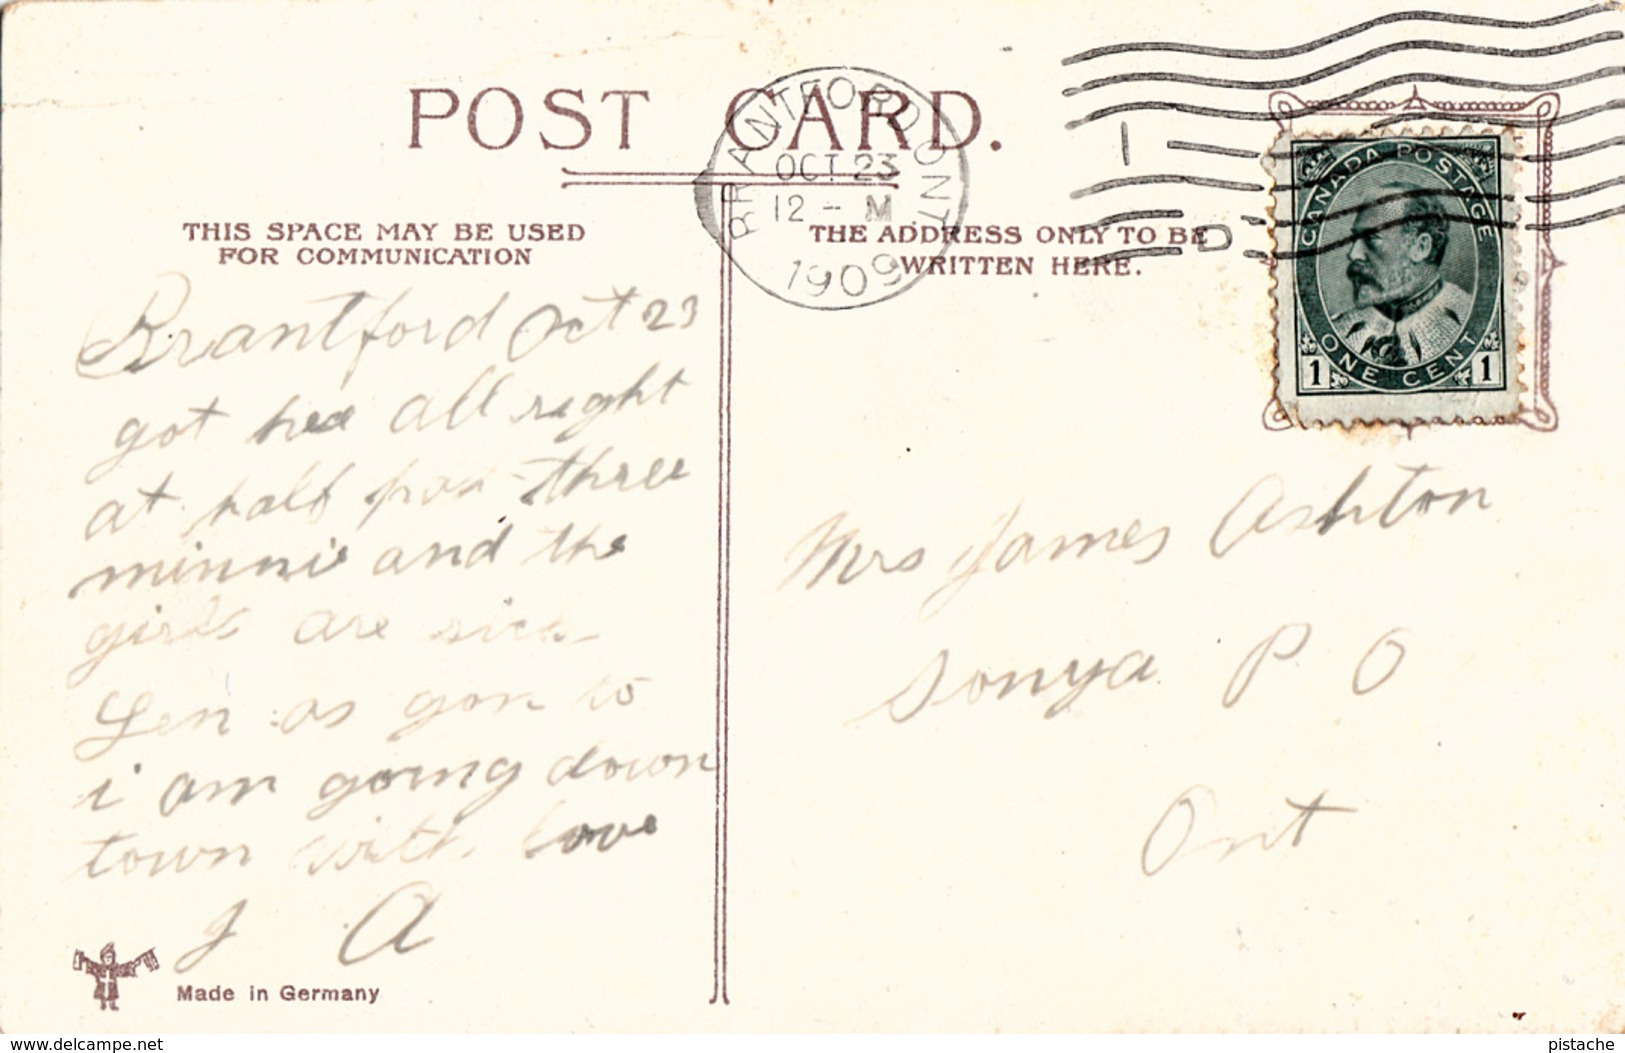 POST CARD.
BRANTFORD ONT
OCT 23
12 - M
1909
1
D
CANADA POSTAGE
ONE CENT
1 1
THIS SPACE MAY BE USED
FOR COMMUNICATION
THE ADDRESS ONLY TO BE
WRITTEN HERE.
Brantford Oct 23
got hee all right
at half pas three
minnie and the
girls are sick
Len as gon to
i am going down
town with love
J A
Mrs James Ashton
Sonya P O
Ont
Made in Germany
www.delcampe.net
pistache